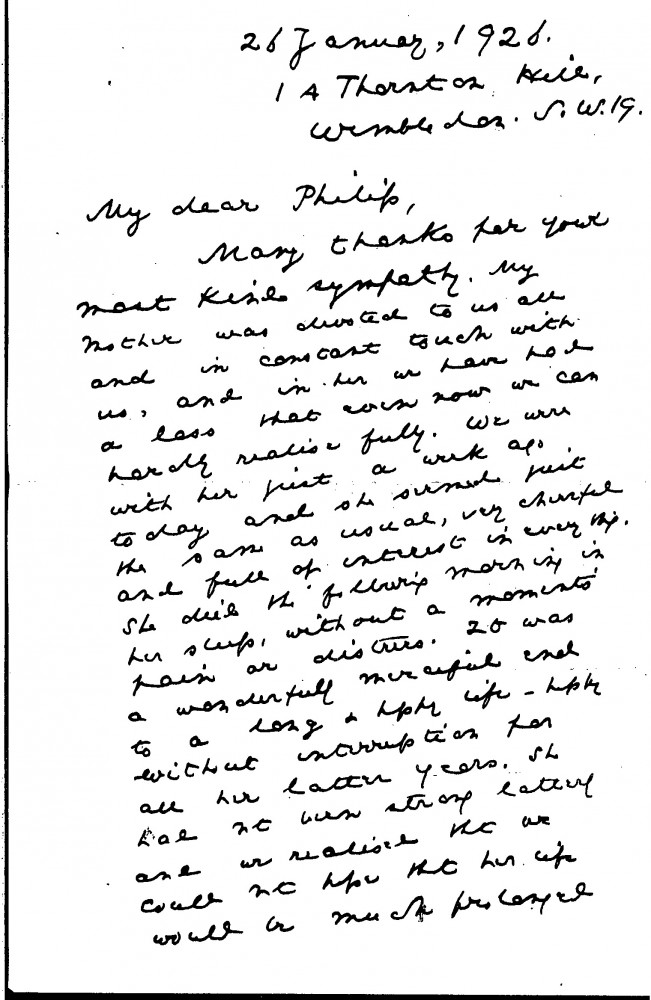 26 January, 1926.
1 A Thornton Hill,
Wimbledon. S.W.19.
My dear Philip,
Many thanks for your
most kind sympathy. My
mother was devoted to us all
and in constant touch with
us, and in her we have had
a loss that even now we can
hardly realise fully. We were
with her just a week ago
today and she seemed just
the same as usual, very cheerful
and full of interest in everything.
She died the following morning in
her sleep, without a moments
pain or distress. It was
a wonderfully merciful end
to a long & happy life - happy
without interruption for
all her latter years. She
had not been strong latterly
and we realised that we
could not hope that her life
would be much prolonged